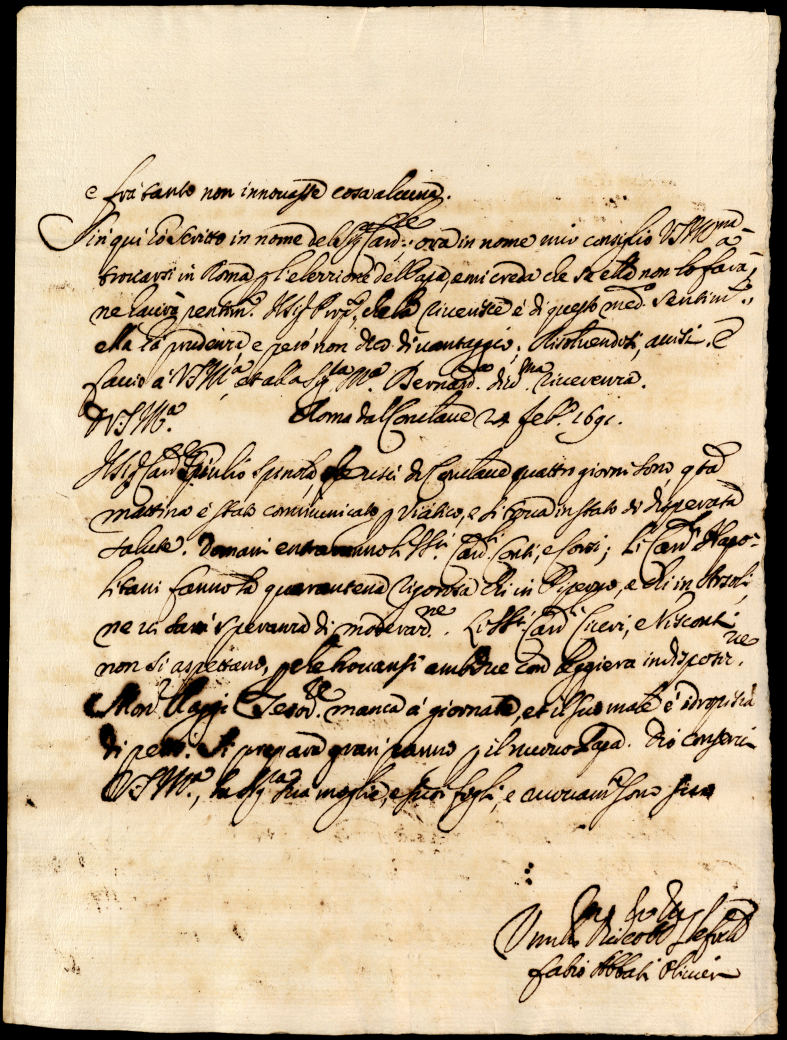 e frà tanto non innovasse cosa alcuna.
Sin qui hò scritto in nome del Sig.r Card.le: ora in nome mio consiglio V.S.Ill.ma à
trovarsi in Roma p l'elezzione del Papa, e mi creda che se ella non lo farà,
ne haurà pentim.to. Il Sig.r che la riverisce è di questo med.o sentim.to,
ella hà prudenza e però non dico di vantaggio. Risoluendosi, auisi. E
faccio à V.S.Ill.ma, et alla Sig.ra M.a Bernard.a div.ma riuerenza.
D V.S.Ill.ma Roma dal Conclaue 24 feb.o 1691.
Il Sig.r Card.le Giulio Spinola, che uscì di Conclaue quattro giorni sono, q.ta
mattina è stato communicato p Viatico, e si troua in stato di disperata
salute. Domani entraranno li SS.ri Card.li Conti, e Corsi; li Card.li Napo=
litani fanno la quarantena rigorosa chi in Piperno, e chi in Arsoli,
ne ui sarà speranza di moderaz.ne. Li SS.ri Card.li Cieri, e Visconti
non si aspettano, p che trouansi ambidue con leggiera indispositi.ne.
Mons.r Maggi Tesor.re manca à giornate, et il suo male è idropisia
di petto. Si prepara gran panno p il nuouo Papa. Dio conserui
V.S.Ill.ma, la Sig.ra sua moglie, e suoi figli, e duouam.te sono
Fabio Abbati Oliuieri